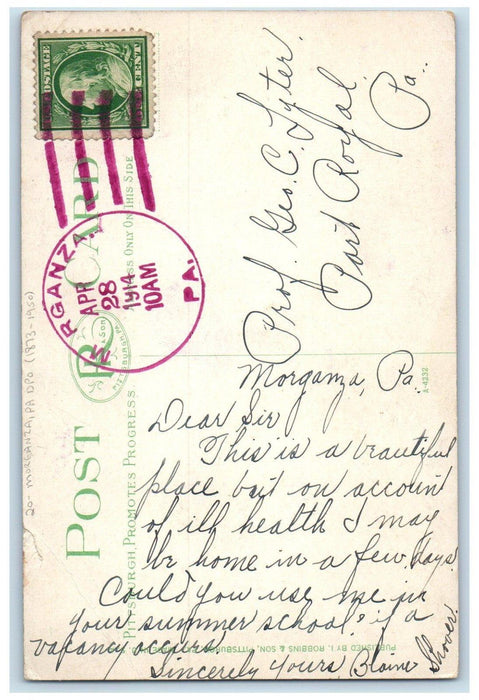 POSTAGE
ONE CENT
MORGANZA
APR
28
1914
10AM
PA.
Prof. Geo. C. Lyter.
Port Royal
Pa.
Morganza, Pa.
Dear Sir
This is a beautiful
place but on account
of ill health I may
be home in a few days.
Could you use me in
your summer school if a
vacancy occurs.
Sincerely Yours Blaine Shover.
POST CARD
ADDRESS ONLY ON THIS SIDE
PITTSBURGH PROMOTES PROGRESS
& SON
PITTSBURGH, PA.
A-4232
PUBLISHED BY I. ROBBINS & SON, PITTSBURGH
20- MORGANZA, PA DPO (1873-1950)